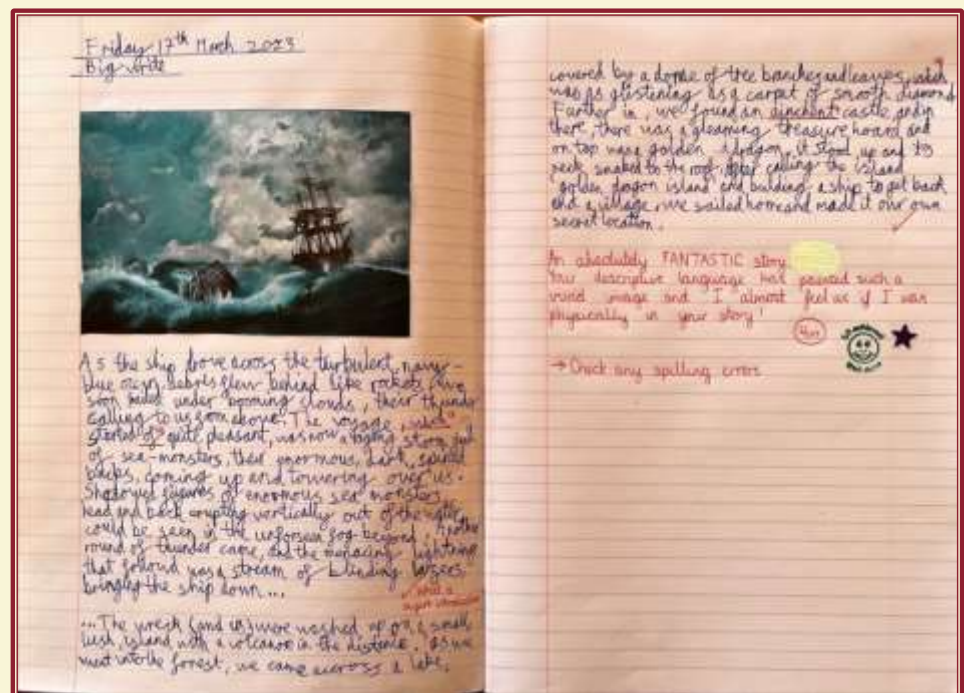 Friday 17th March 2023
Big Write
As the ship drove across the turbulent, navy-
blue ocean, debris flew behind like rockets. We
soon sailed under booming clouds, their thunder
calling to us from above. The voyage, which
started of quite pleasant, was now a raging storm full
of sea-monsters, their enormous, dark, spined
backs, coming up and towering over us.
Shadowed figures of enormous sea monsters
head and back erupting vertically out of the water
could be seen in the unforseen fog beyond. Another
round of thunder came, and the menacing lightning
that followd was a stream of blinding lasers,
bringing the ship down...
what a
super
...The wreck (and us) were washed up on a small
lush island with a volcano in the distance. As we
went into the forest, we came accross a lake,
covered by a dome of tree branches and leaves, which
was as glistening as a carpet of smooth diamond.
Further in, we found an ainchent castle and in
there, there was a gleaming treasure hoard and
on top was a golden dragon. it stood up and its
neck snaked to the roof. After calling the island
golden dragon island and building a ship to get back
and a village, we sailed home and made it our own
secret location.
An absolutely FANTASTIC story
You descriptive language has painted such a
vivid image and I almost feel as if I was
physically in your story!
→ Check any spelling errors